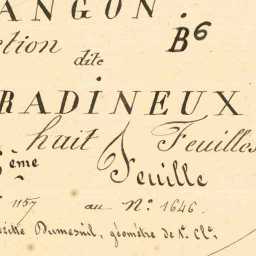 ANGON.
ction B6
dite
RADINEUX
huit Feuilles
ème Feuille
1157 au No. 1646.
Dumesnil, géomètre de 1e. Cle.